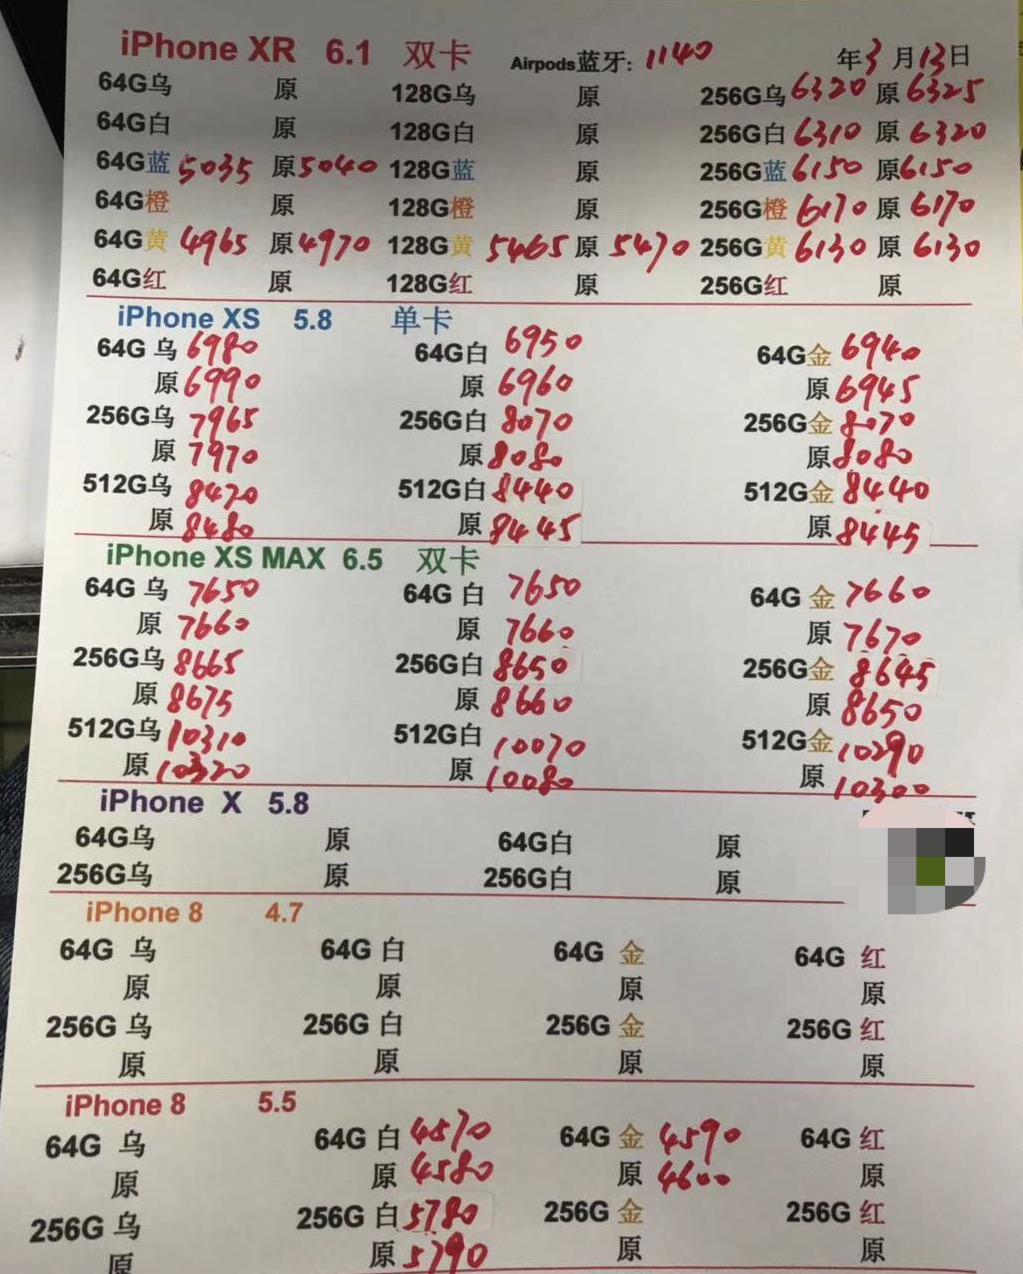 iPhone XR 6.1 双卡 Airpods蓝牙: 1140 年3月13日
64G乌 原 128G乌 原 256G乌 6320 原 6325
64G白 原 128G白 原 256G白 6310 原 6320
64G蓝 5035 原5040 128G蓝 原 256G蓝 6150 原6150
64G橙 原 128G橙 原 256G橙 6170 原 6170
64G黄 4965 原4970 128G黄 5465 原 5470 256G黄 6130 原 6130
64G红 原 128G红 原 256G红 原
iPhone XS 5.8 单卡
64G 乌 6980 64G白 6950 64G金 6940
原6990 原 6960 原6945
256G乌 7965 256G白 8070 256G金 8070
原 7970 原8080 原8080
512G乌 8470 512G白 8440 512G金 8440
原 8480 原 8445 原8445
iPhone XS MAX 6.5 双卡
64G 乌 7650 64G 白 7650 64G 金 7660
原 7660 原 7660 原 7670
256G乌 8665 256G白 8650 256G金 8645
原 8675 原 8660 原 8650
512G乌 10310 512G白 10070 512G金 10290
原 10320 原 10080 原 10300
iPhone X 5.8
64G乌 原 64G白 原
256G乌 原 256G白 原
iPhone 8 4.7
64G 乌 64G 白 64G 金 64G 红
原 原 原 原
256G 乌 256G 白 256G 金 256G 红
原 原 原 原
iPhone 8 5.5
64G 乌 64G 白 4570 64G 金 4590 64G 红
原 原 4580 原 4600 原
256G 乌 256G 白 5780 256G 金 256G 红
原 原 5790 原 原